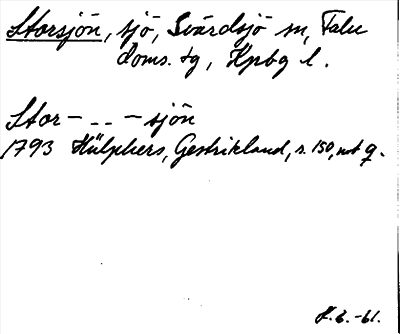 Storsjön, sjö, Svärdsjö sn, Falu
doms. tg, Kpbg l.
Stor - - - - sjön
1793 Hülphers, Gestrikland, s. 150, not q.
-61.